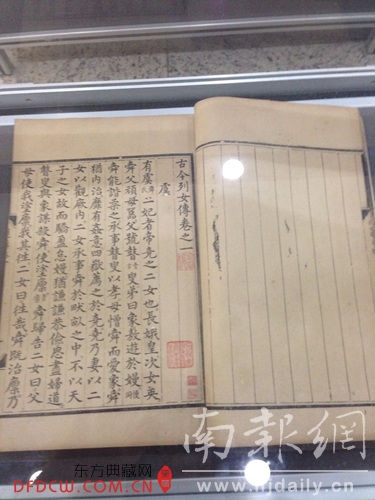 古今列女傳卷之一
虞
有虞二妃者帝堯之二女也長娥皇次女英
舜父頑母嚚父號瞽叟弟曰象敖遊於嫚
舜能諧柔之承事瞽叟以孝母憎舜而愛象舜
猶內治靡有姦意四嶽薦之於堯堯乃妻以二
女以觀厥內二女承事舜於畎畝之中不以天
子之女故而驕盈怠嫚猶謙謙恭儉思盡婦道
瞽叟與象謀殺舜使塗廩舜歸告二女曰父
母使我塗廩我其往二女曰往哉舜既治廩乃
东方典藏网
DFDCW.COM.CN
南報網
njdaily.cn